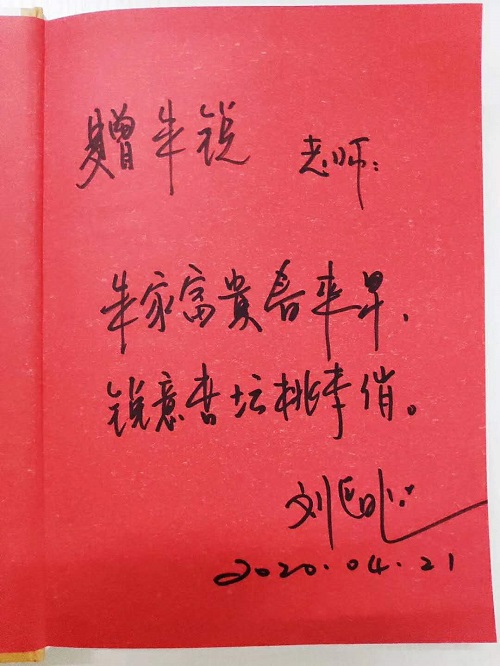 赠朱锐 老师:
朱家富贵春来早、
锐意杏坛桃李俏。
刘
2020.04.21